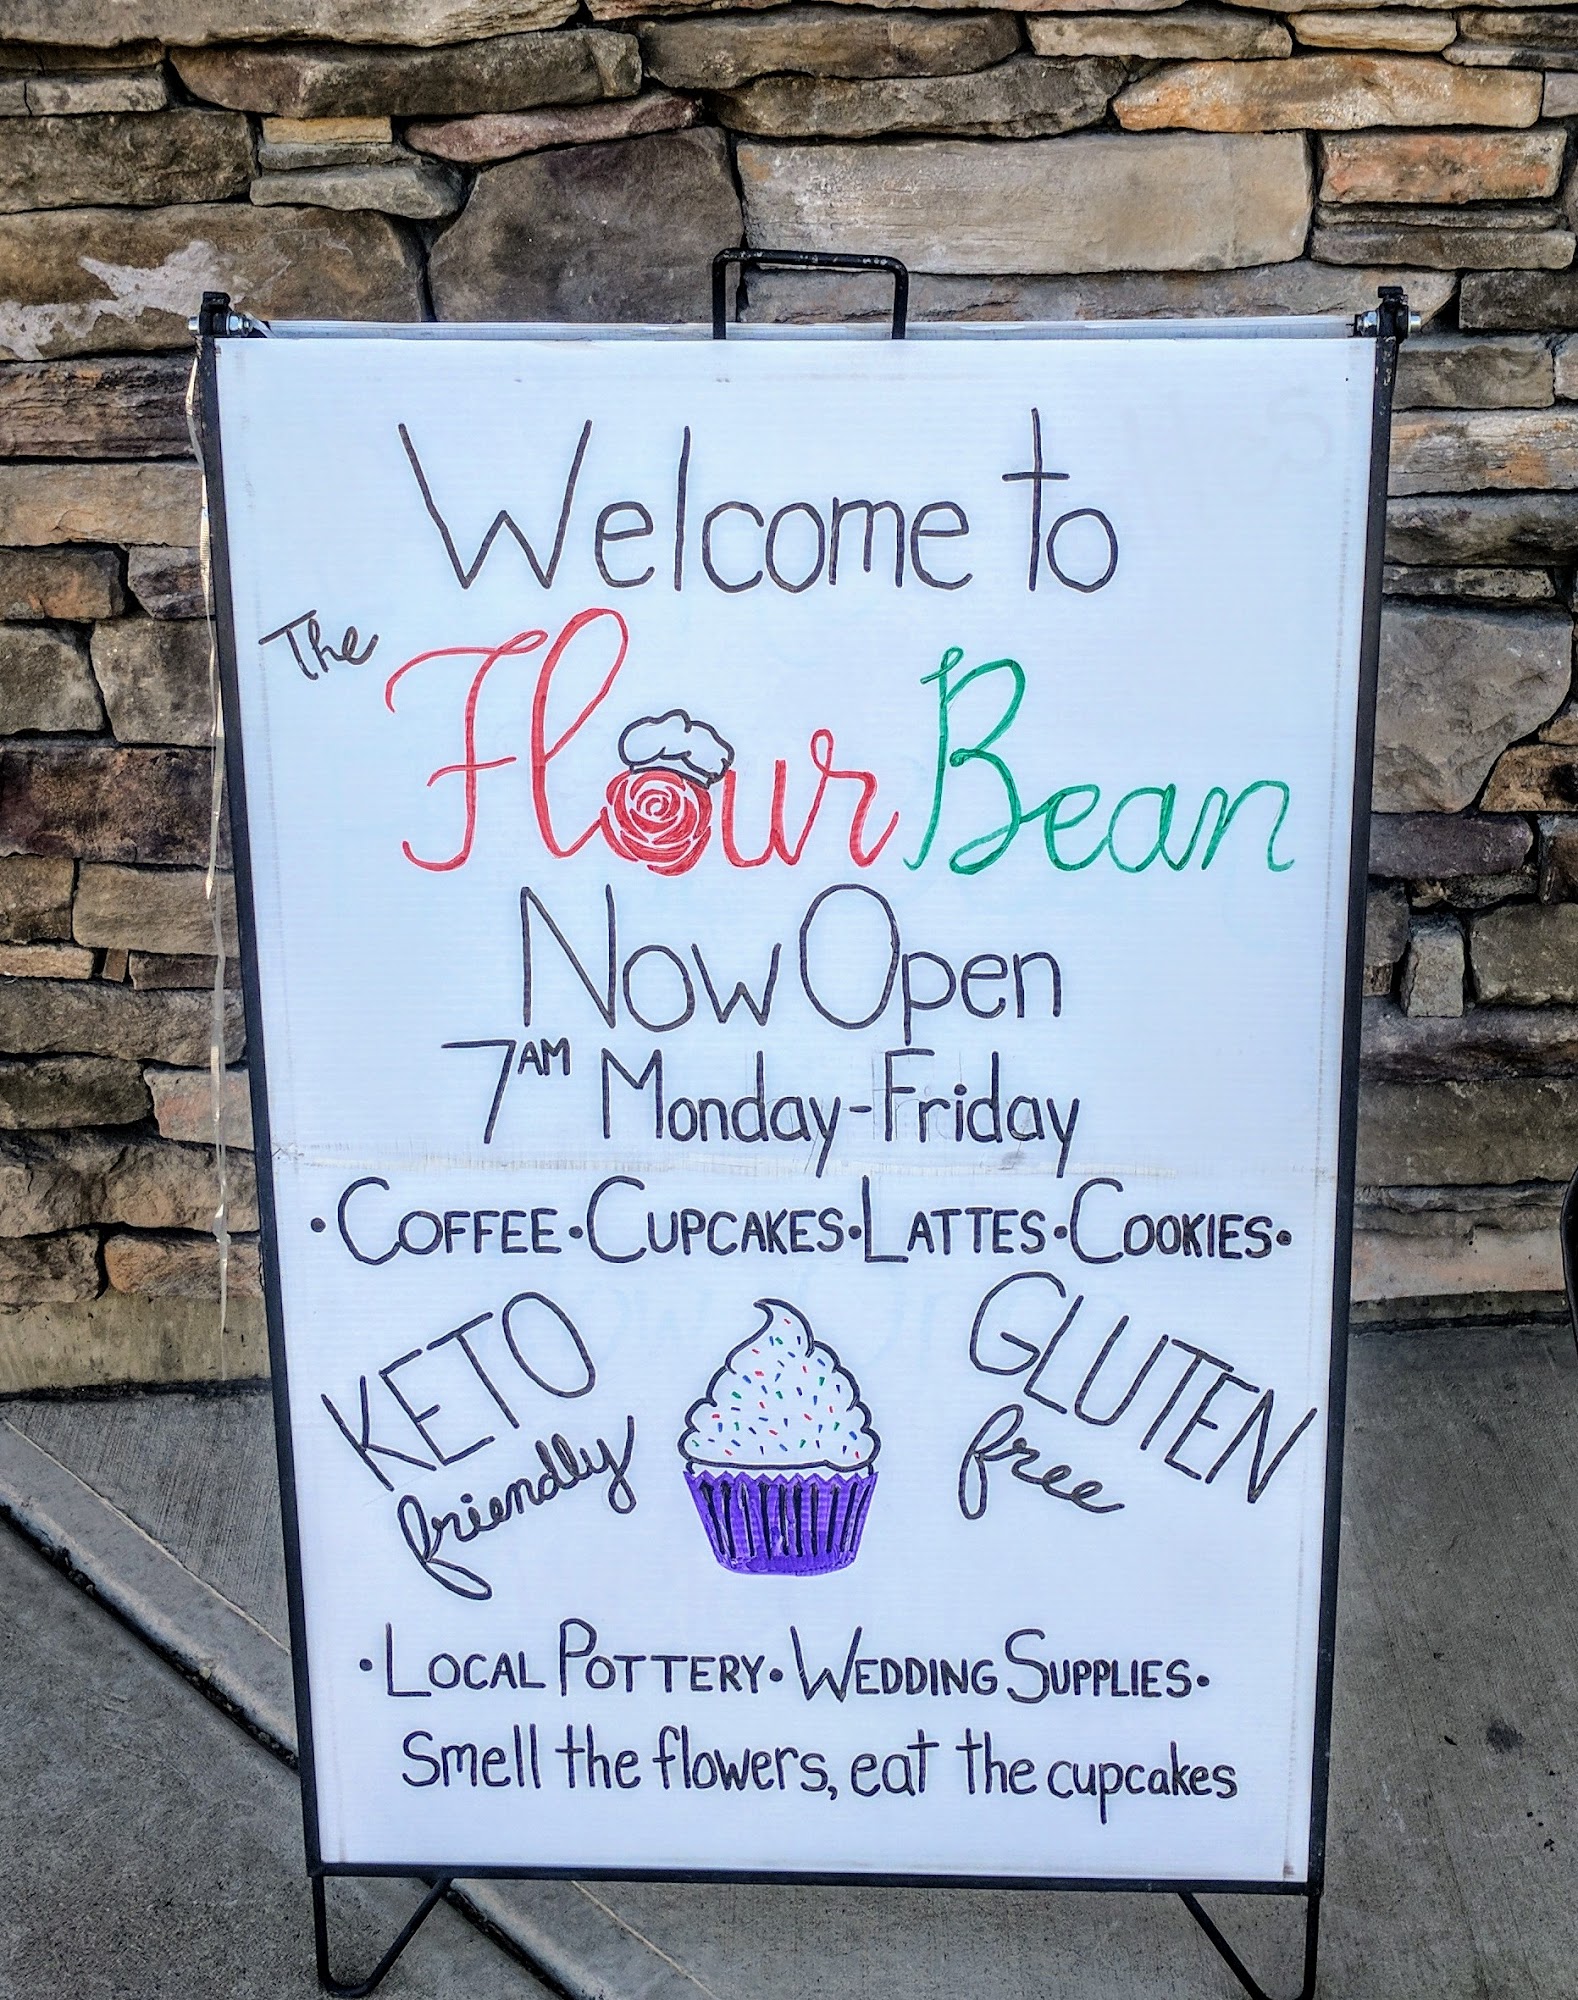 Welcome to
The Flour Bean
Now Open
7AM Monday-Friday
• COFFEE • CUPCAKES • LATTES • COOKIES •
KETO
friendly
GLUTEN
free
• LOCAL POTTERY • WEDDING SUPPLIES •
Smell the flowers, eat the cupcakes